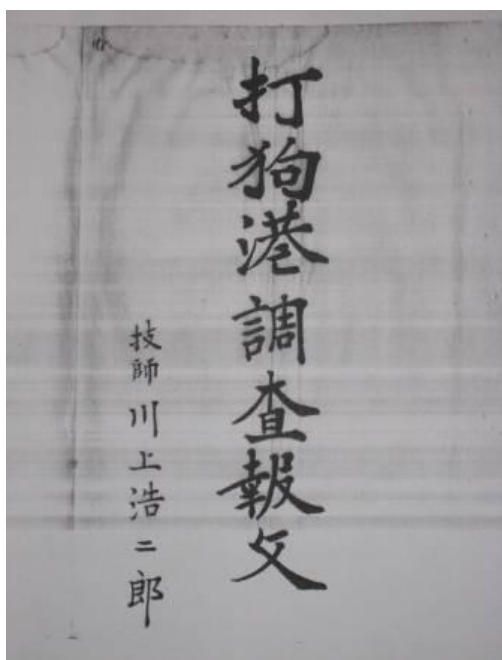 打狗港調査報文
技師川上浩二郎